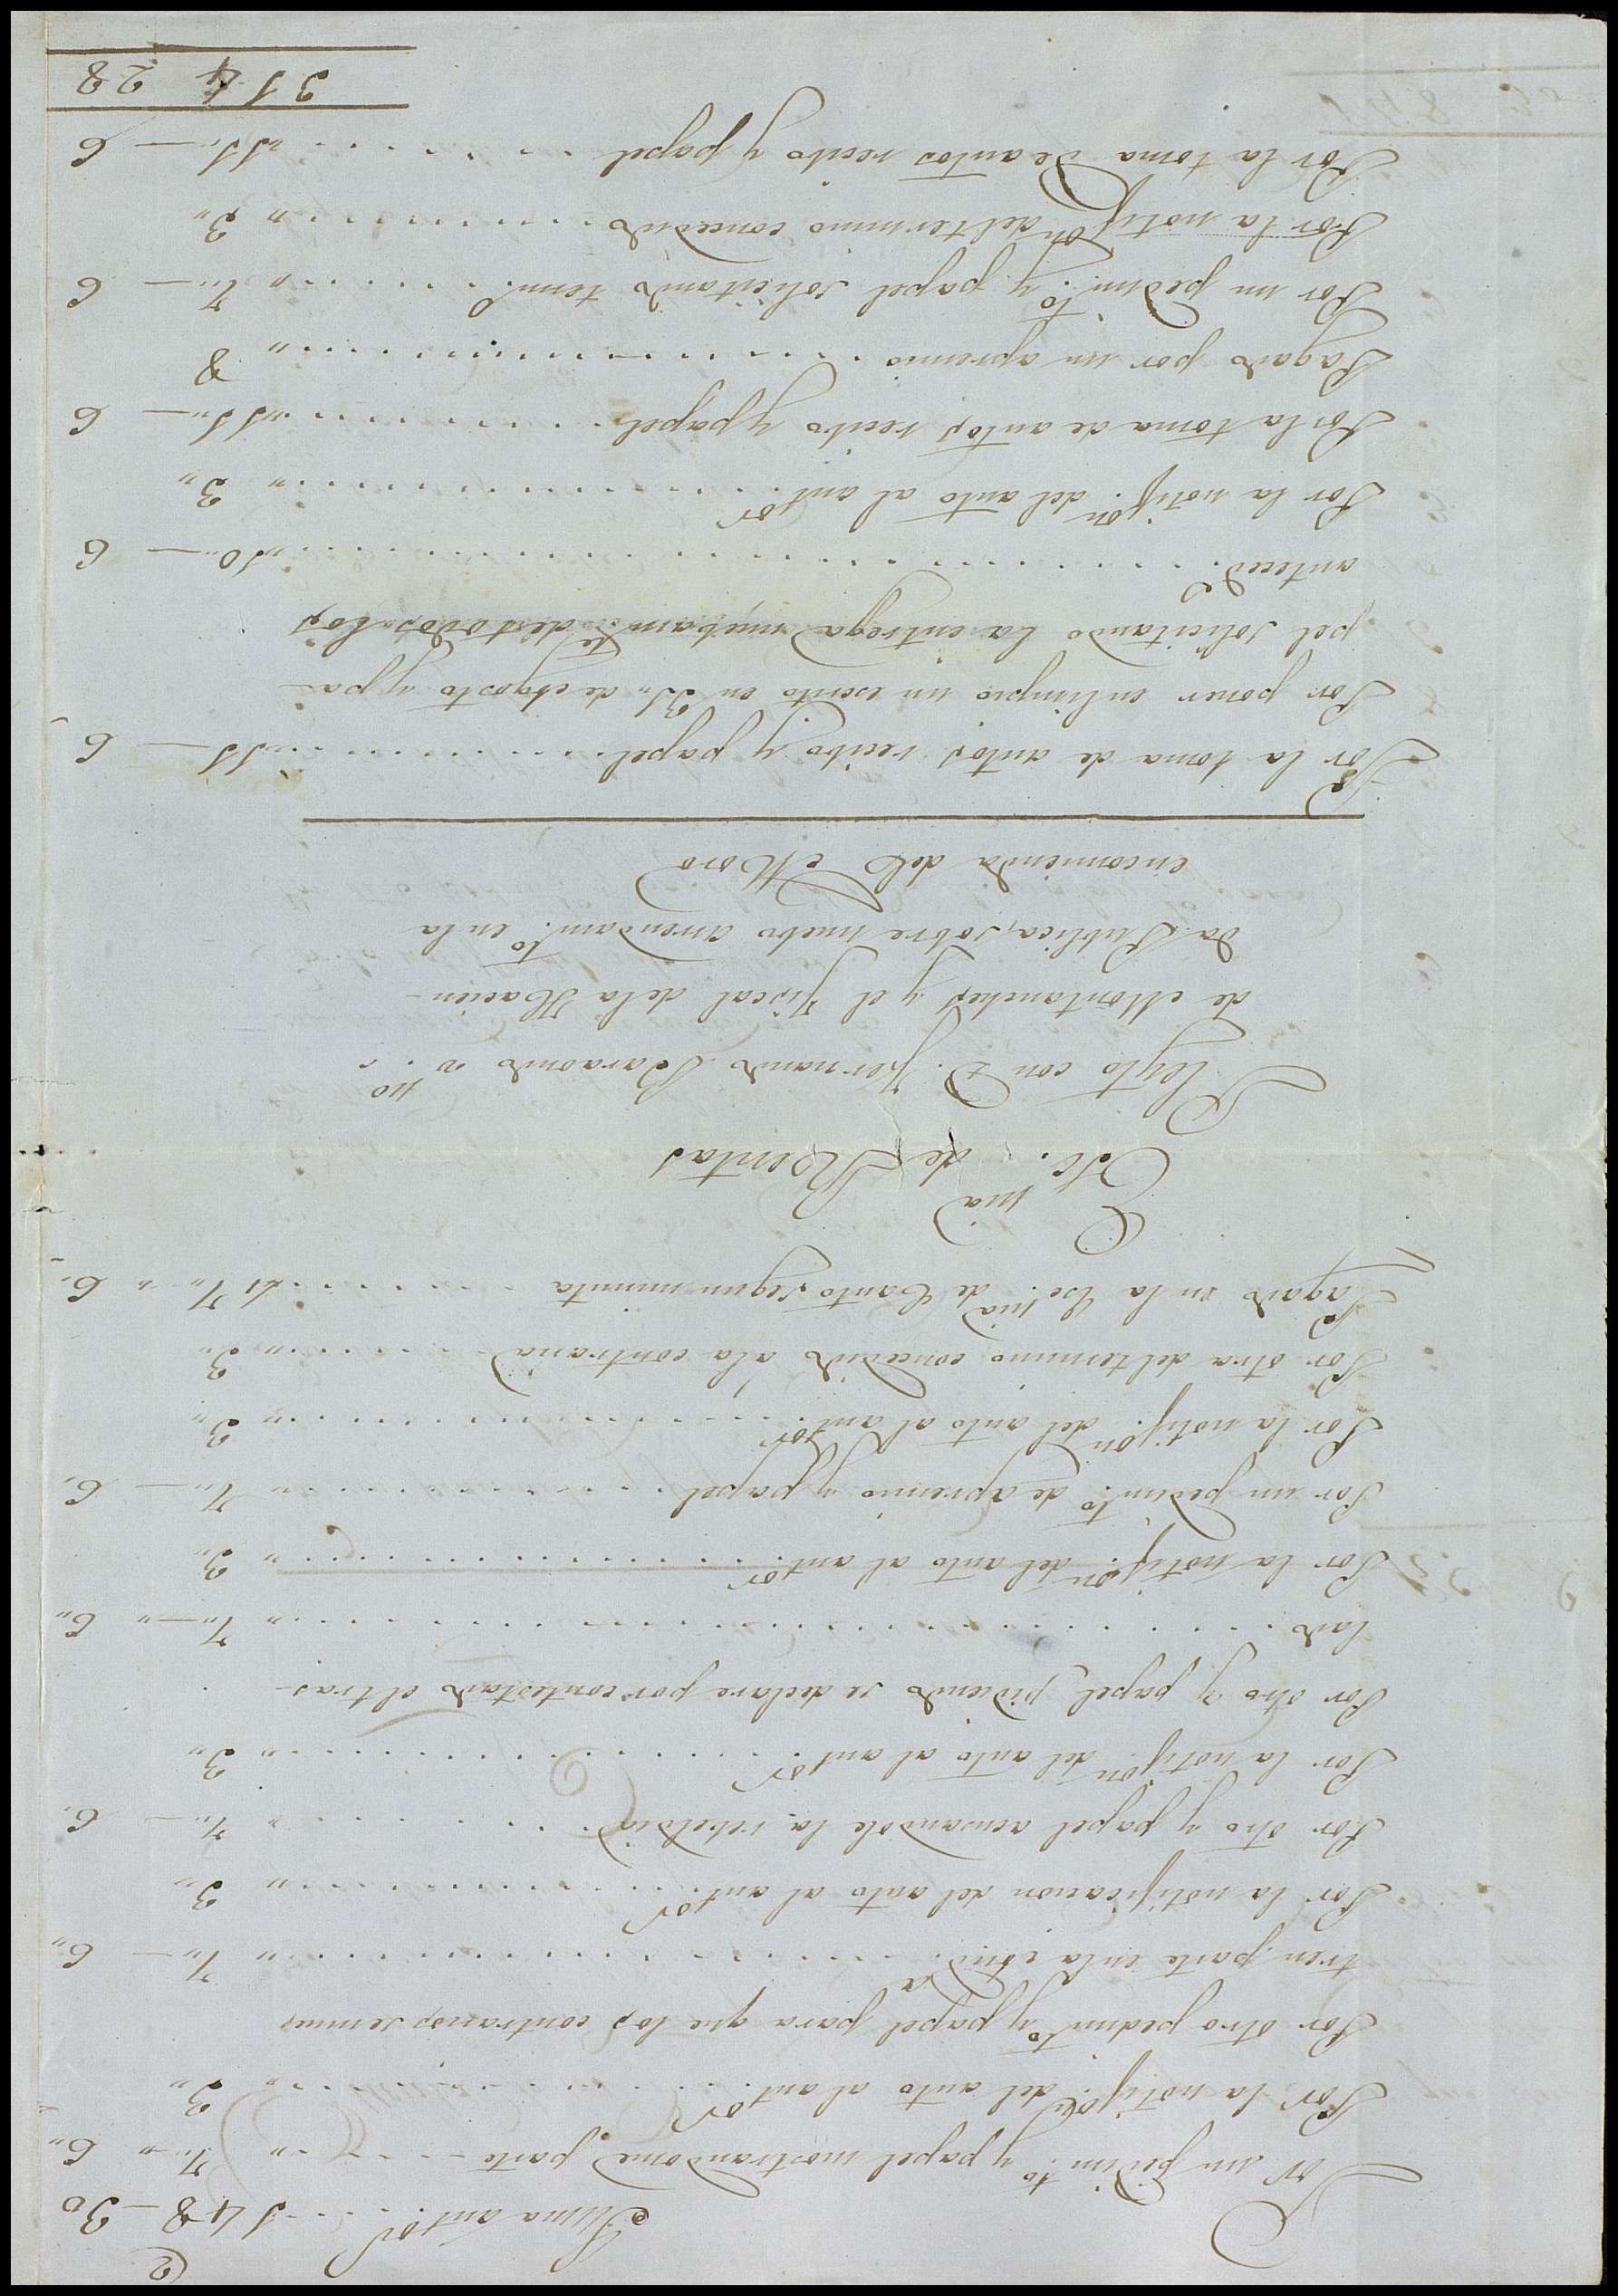 2
Suma ant.or . . . 148 — 30
Por un pedim.to y papel mostrandome parte . . . „ 7„ „ 6„
Por la notif.on del auto al ant.or . . . „ 3„
Por otro pedim.to y papel para que los contrarios semues
tren parte en la . . . „ 7„ — 6„
Por la notificacion del auto al ant.or . . . „ 3„
Por otro y papel acusandole la rebeldia . . . „ 7„ — 6„
Por la notif.on del auto al ant.or . . . „ 3„
Por otro y papel, pidiendo se declare por contestado el tras-
lado . . . „ 7„ — „ 6„
Por la notif.on del auto al ant.or . . . „ 3„
Por un pedim.to de apremio y papel . . . „ 7„ — 6„
Por la notif.on del auto al ant.or . . . „ 3„
Por otra del termino concedido ála contraria . . . „ 3„
Pagado en la Esc.nia de Canto, segun minuta . . . 47„ „ 6„
Esc.nia de Rentas
Pleyto con D. Fernando Baraona v.no
de Montanches y el Fiscal dela Hacien-
da Publica, sobre nuebo arrendam.to en la
encomienda del Moro
Por la toma de autos, recibo y papel . . . 11 — 6
Por poner enlimpio un escrito en 31„ de Agosto y pa-
pel solicitando la entrega nuebam.te de todos los
anteced.s . . . „10„ — 6
Por la notif.on del auto al ant.or . . . „ 3„
Por la toma de autos, recibo y papel . . . „11„ — 6
Pagado por un apremio . . . „ 8
Por un pedim.to y papel solicitando term.o . . . „ 7„ — 6
Por la notif.on del termino concedido . . . „ 3„
Por la toma de autos recibo y papel . . . „11„ — 6
314 28